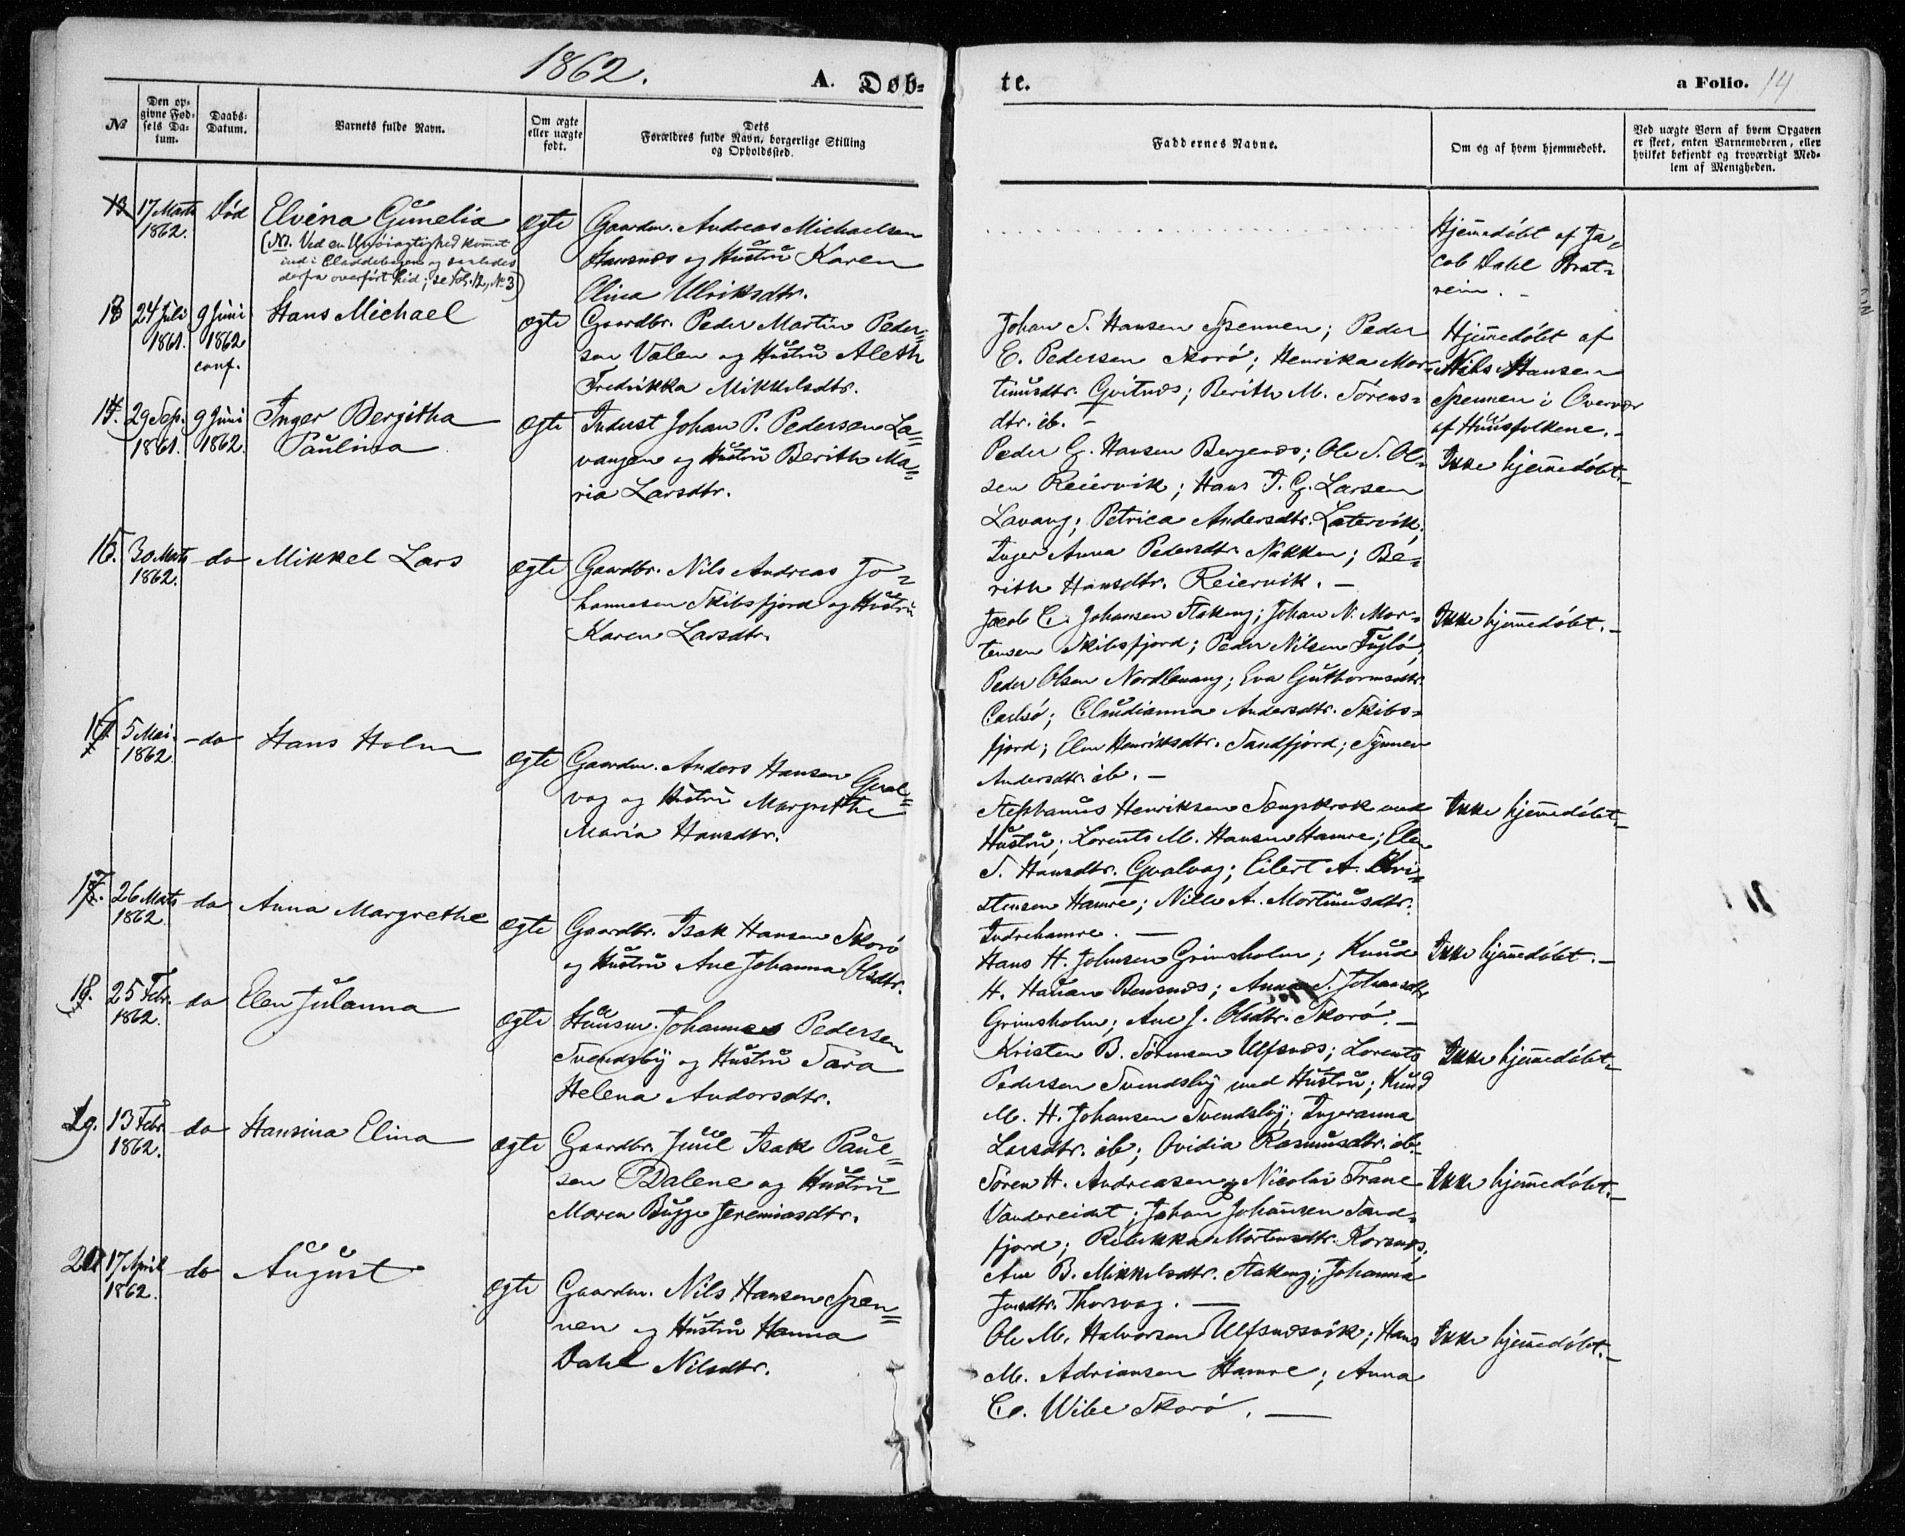 1862.
A. Døb-
te.
a Folio. 14
№
Den op-
givne Fød-
sels Da-
tum.
Daabs-
Datum.
Barnets fulde Navn.
Om ægte
eller uægte
født.
Dets
Forældres fulde Navn, borgerlige Stilling
og Opholdssted.
Faddernes Navne.
Om og af hvem hjemmedøbt.
Ved uægte Børn af hvem Opgaven
er skeet, enten Barnemoderen, eller
hvilket bekjendt og troværdigt Med-
lem af Menigheden.
17 Marts
1862.
Død
Elvina Gunelia
(NB. Ved en Unøiagtighed kom̄et
ind i Kladdebogen og saaledes
derfra overført hid; se Fol. 12, № 3)
ægte
Gaardm. Andreas Michaelsen
Hansnæs og Hustru Karen
Olina Ulriksdtr.
Hjem̄edøbt af Ja-
cob Dahl Brat-
rein. -
13
24 Juli
1861.
9 Juni
1862
conf.
Hans Michael
ægte
Gaardbr. Peder Martin Peder-
sen Valen og Hustru Aleth
Fredrikka Mikkelsdtr.
Johan S. Hansen Spennen; Peder
E. Pedersen Skorø; Henrika Mor-
tinusdtr. Gvitnæs; Berith M. Sørens-
dtr. ib. -
Hjem̄edøbt af
Niels Hansen
Spennen i Overvær
af Huusfolkene. -
14.
29 Sep.
1861.
9 Juni
1862.
Inger Bergitha
Paulina
ægte
Inderst Johan P. Pedersen La-
vangen og Hustru Berith Ma-
ria Larsdtr.
Peder G. Hansen Bergenæs; Ole S. Ol-
sen Reiervik; Hans J. G. Larsen
Lavang; Petrica Andersdtr. Latervik;
Inger Anna Pedersdtr. Nakken; Be-
rith Hansdtr. Reiervik. -
Ikke hjem̄edøbt. -
15.
30 Marts
1862.
do
Mikkel Lars
ægte
Gaardbr. Nils Andreas Jo-
hannesen Skibsfjord og Hustru
Karen Larsdtr.
Jacob C. Johansen Stakeng; Johan N. Mor-
tensen Skibsfjord; Peder Nilsen Fuglø;
Peder Olsen Nordlenang; Eva Guthormsdtr.
Carlsø; Claudianna Andersdtr. Skibs-
fjord; Elen Henriksdtr. Sandfjord; Synnev
Andersdtr. ib. -
Ikke hjem̄edøbt. -
16
5 Mai
1862.
do
Hans Holm
ægte
Gaardm. Anders Hansen Gval-
vag og Hustru Margrethe
Maria Hansdtr.
Stephanus Henriksen Sengskrok med
Hustru; Lorents M. Hansen Hamre; Elen
S. Hansdtr. Gvalvag; Eilert A. Kri-
stensen Hamre; Nille A. Mortinusdtr.
Indrehamre. -
Ikke hjem̄edøbt. -
17.
26 Marts
1862.
do
Anna Margrethe
ægte
Gaardbr. Isak Hansen Skorø
og Hustru Ane Johanna Olsdtr.
Hans H. Johnsen Grimsholm; Knud
H. Hansen Bensnæs; Anna S. Johansdtr.
Grimsholm; Ane J. Olsdtr. Skorø. -
Ikke hjem̄edøbt. -
18.
25 Febr.
1862.
do
Elen Julanna
ægte
Huusm. Johannes Pedersen
Svendsby og Hustru Sara
Helena Andersdtr.
Kristen B. Sørensen Ulfsnæs; Lorents
Pedersen Svendsby med Hustru; Knud
M. H. Johansen Svendsby; Ingeranna
Larsdtr. ib; Ovidia Rasmusdtr. ib.
Ikke hjem̄edøbt. -
19.
13 Febr.
1862.
do
Hansina Elina
ægte
Gaardbr. Juul Isak Paul-
sen Dalene og Hustru
Maren Bugge Jeremiasdtr.
Søren H. Andreasen og Nicolai Frane
Vandereidet; Johan Johansen Sand-
fjord; Rebekka Mortensdtr. Korsnæs;
Ane B. Mikkelsdtr. Stakeng; Johanna
Jonsdtr. Thorsvag. -
Ikke hjem̄edøbt. -
20
17 April
1862.
do
August
ægte
Gaardm. Nils Hansen Spen-
nen og Hustru Hanna
Dahl Nilsdtr.
Ole M. Halvorsen Ulfsnæsvik; Hans
M. Adriansen Hamre; Anna
C. Wibe Skorø. -
Ikke hjem̄edøbt. -